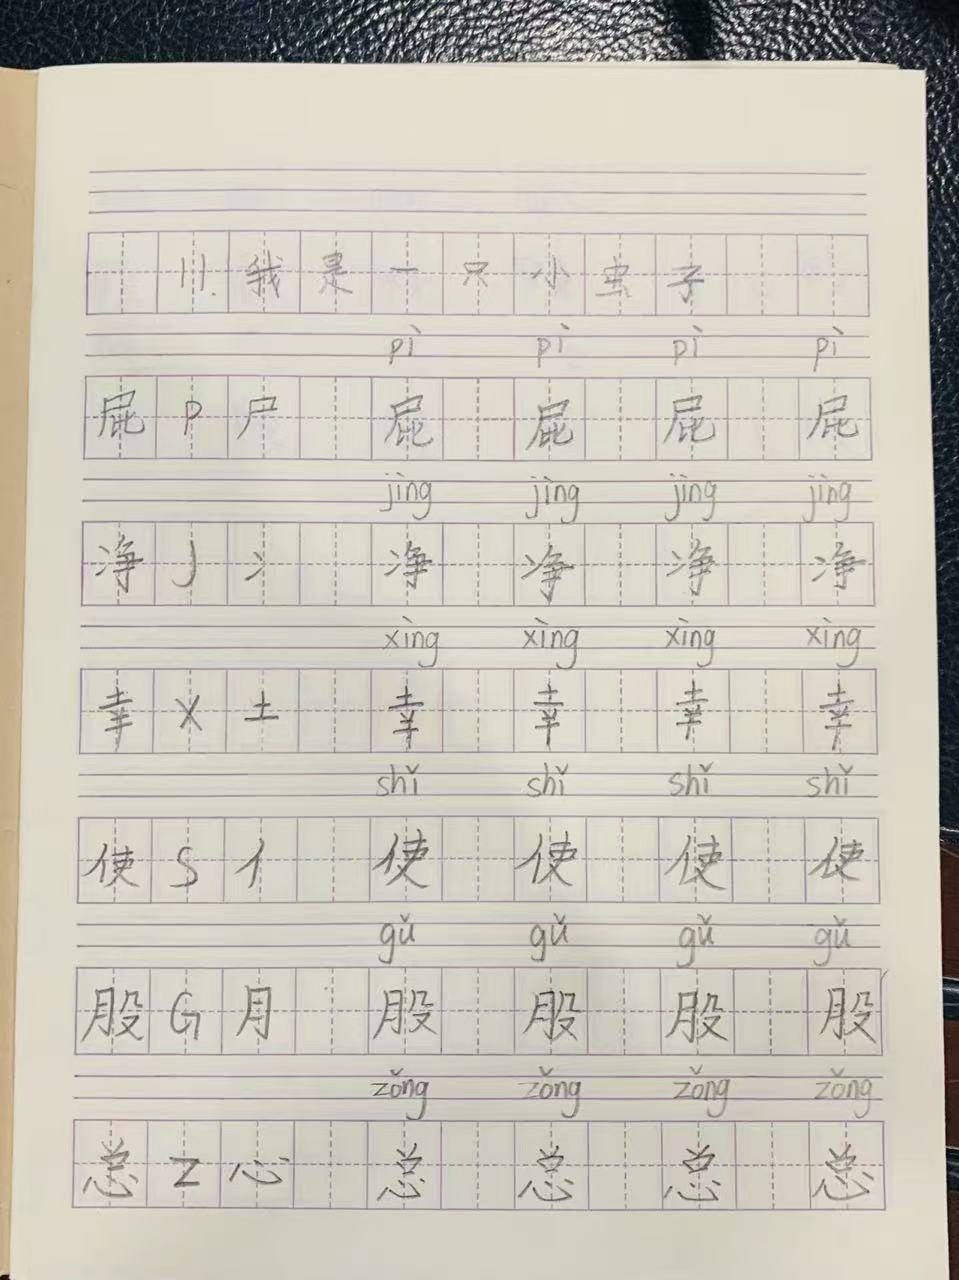 11. 我是一只小虫子
pì pì pì pì
屁 P 尸 屁 屁 屁 屁
jìng jìng jìng jìng
净 J 冫 净 净 净 净
xìng xìng xìng xìng
幸 X 土 幸 幸 幸 幸
shǐ shǐ shǐ shǐ
使 S 亻 使 使 使 使
gǔ gǔ gǔ gǔ
股 G 月 股 股 股 股
zǒng zǒng zǒng zǒng
总 Z 心 总 总 总 总